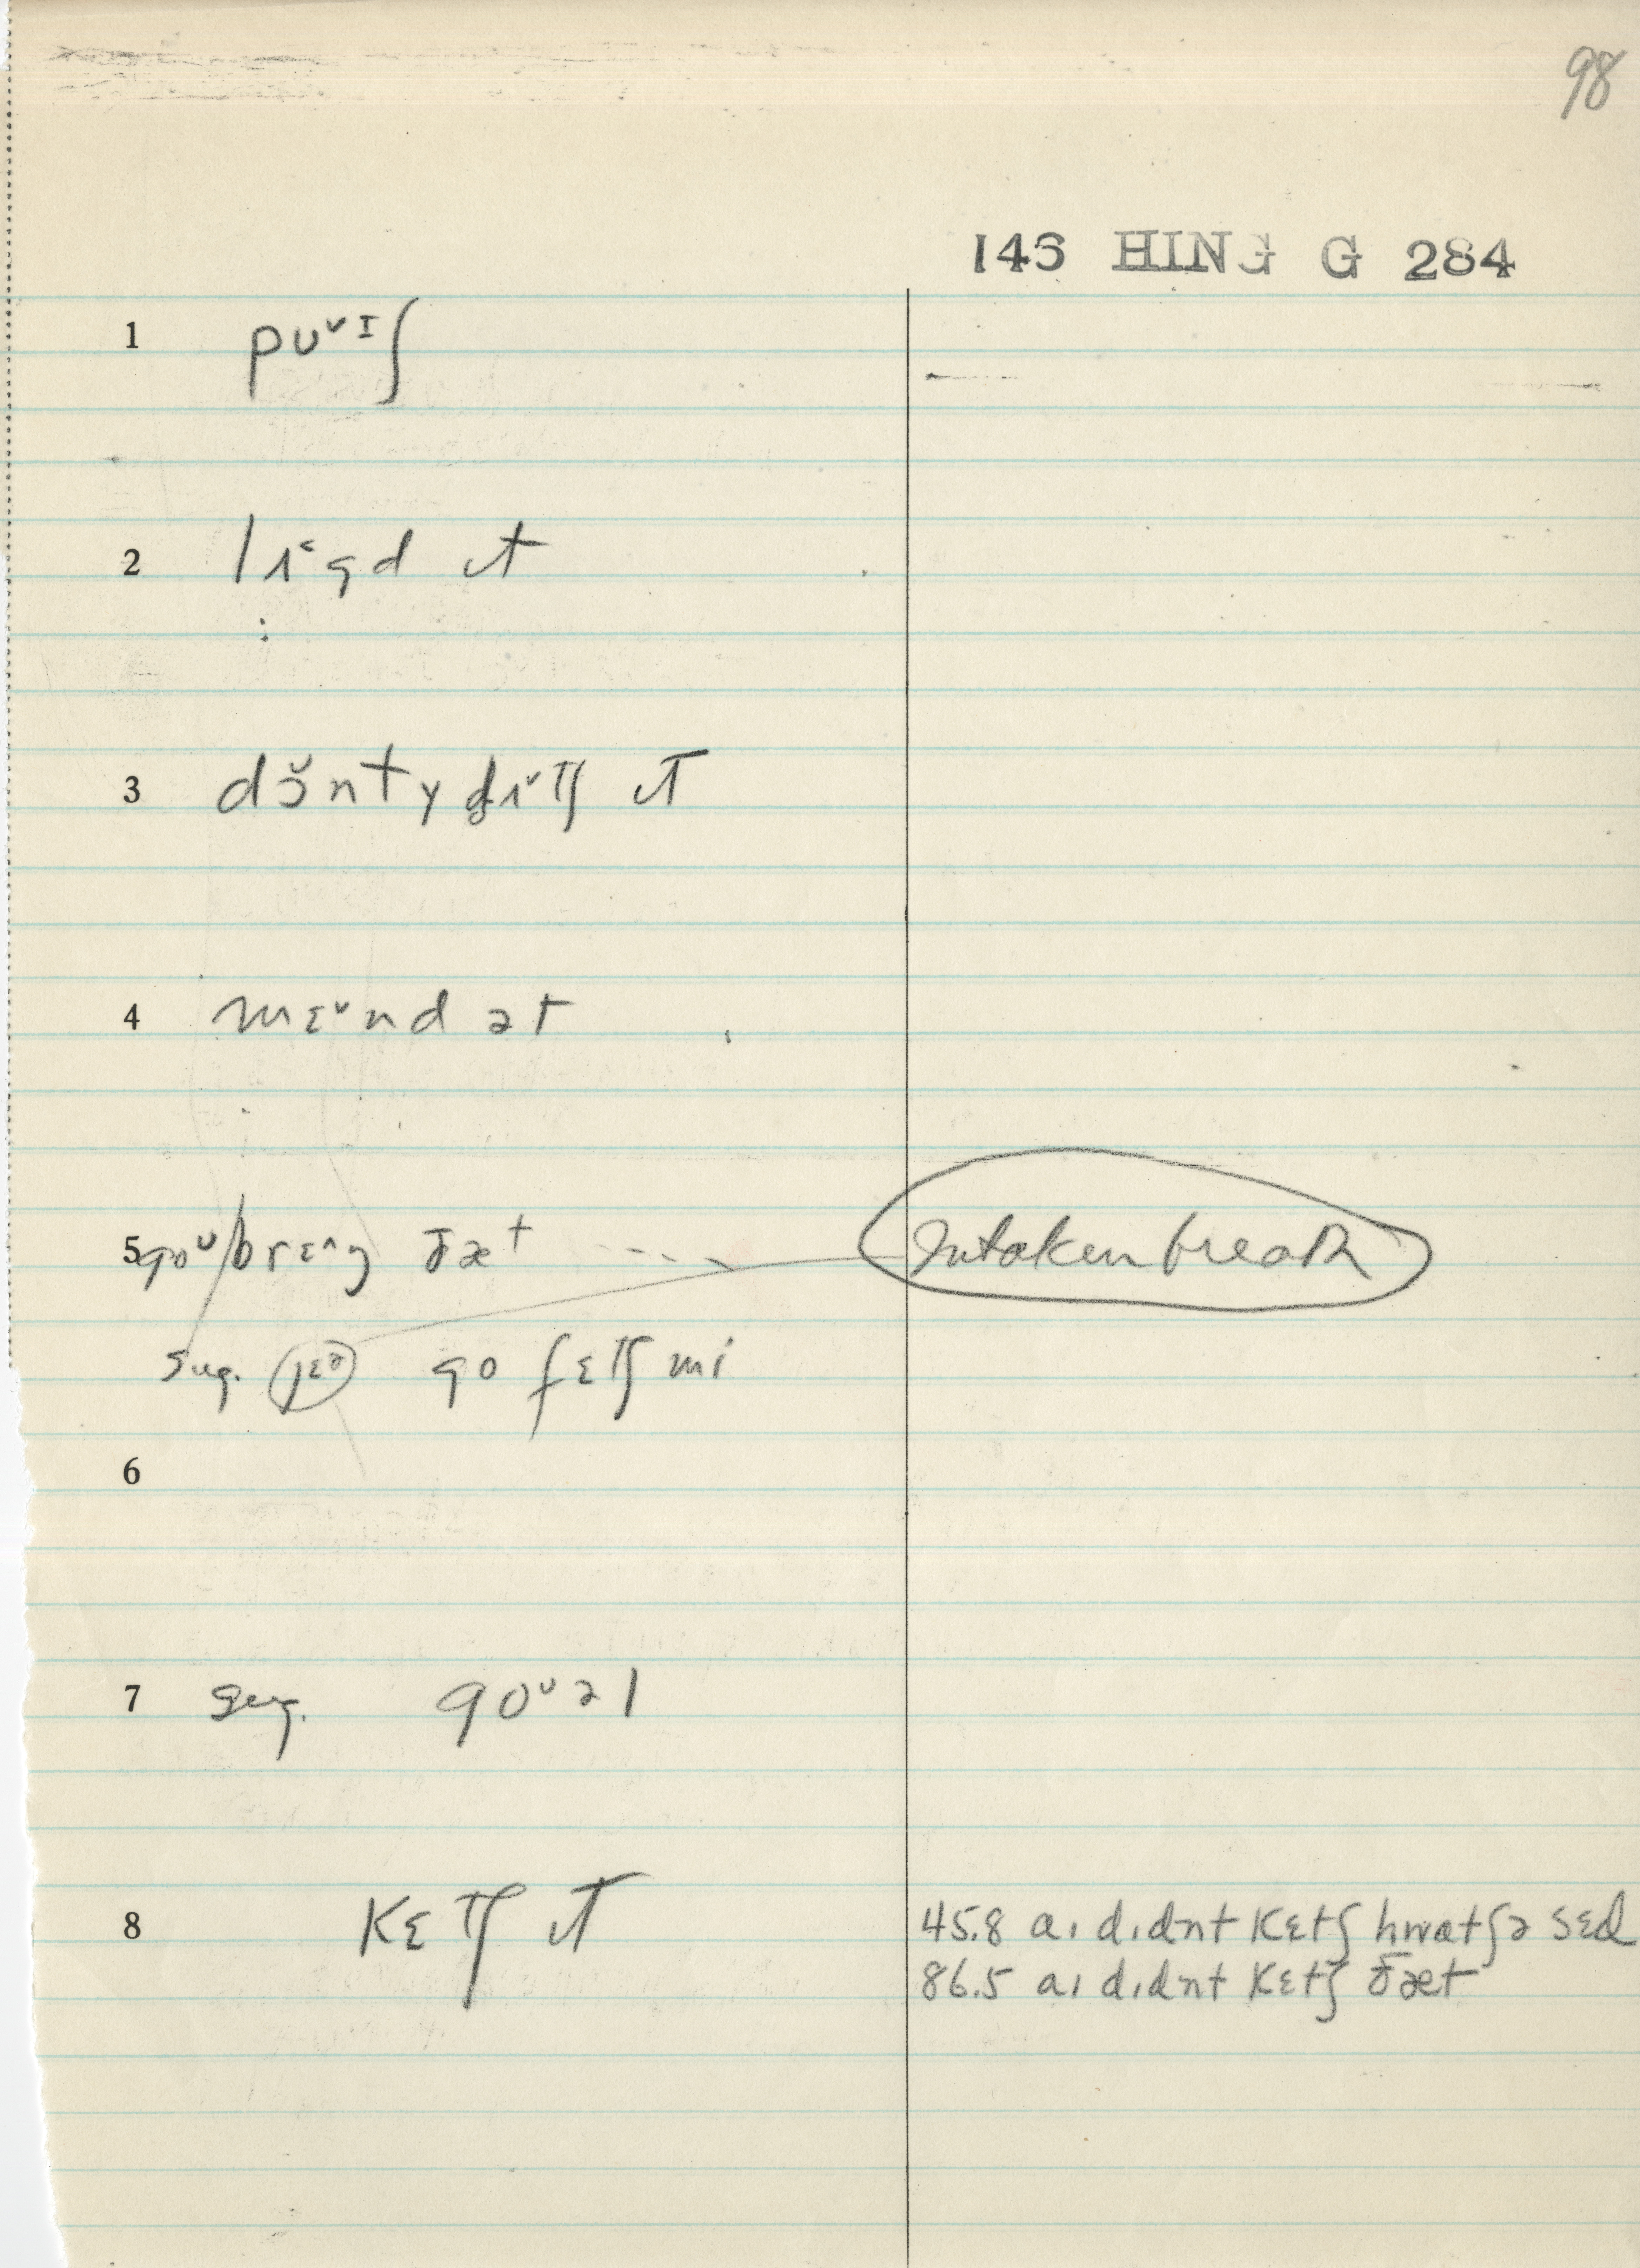 98
146 HING G 284
1 pʊᵛᶦʃ
2 lɪ˂gd ɪt
3 dɔ̆ntʏ dɪ̥ᵛtʃ ɪt
4 mɛᵛnd ət
5 goᵁ/brɛ^ŋ ðæt Intaken breath
sug. jɛə go fɛtʃ mi
6
7 sug. goᵁəl
8 Kɛtʃ ɪt 45.8 aɪ dɪdnt Kɛtʃ hwatʃə sɛd
86.5 aɪ dɪdnt Kɛtʃ ðæt